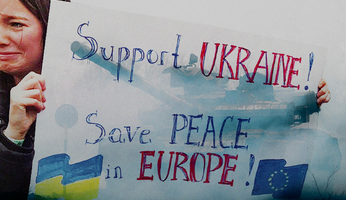 Support UKRAINE!
Save PEACE
in EUROPE!